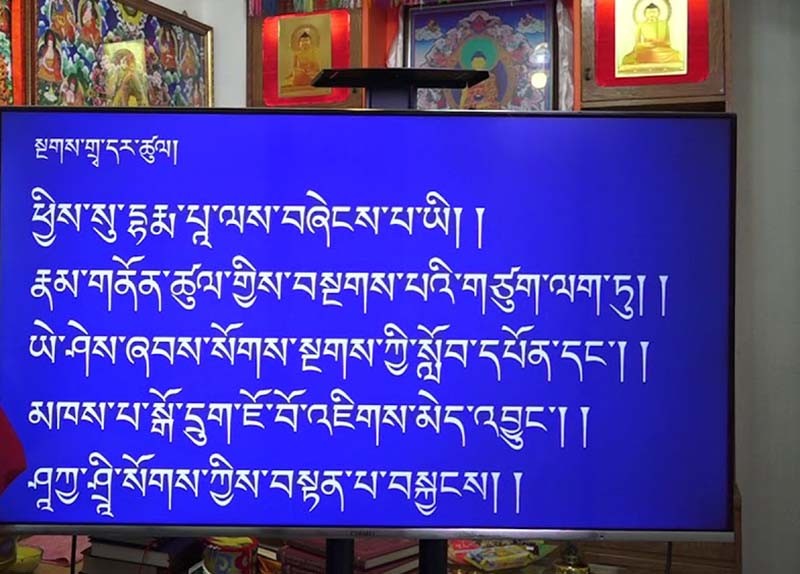 སྔགས་གྲྭ་དར་ཚུལ།
ཕྱིས་སུ་དྷརྨ་པཱ་ལས་བཞེངས་པ་ཡི། །
རྣམ་གནོན་ཚུལ་གྱིས་བསྔགས་པའི་གཙུག་ལག་ཏུ། །
ཡེ་ཤེས་ཞབས་སོགས་སྔགས་ཀྱི་སློབ་དཔོན་དང་། །
མཁས་པ་སྒོ་དྲུག་ཇོ་བོ་འཇིགས་མེད་འབྱུང་། །
ཤཱཀྱ་ཤྲཱི་སོགས་ཀྱིས་བསྟན་པ་བསྐྱངས། །